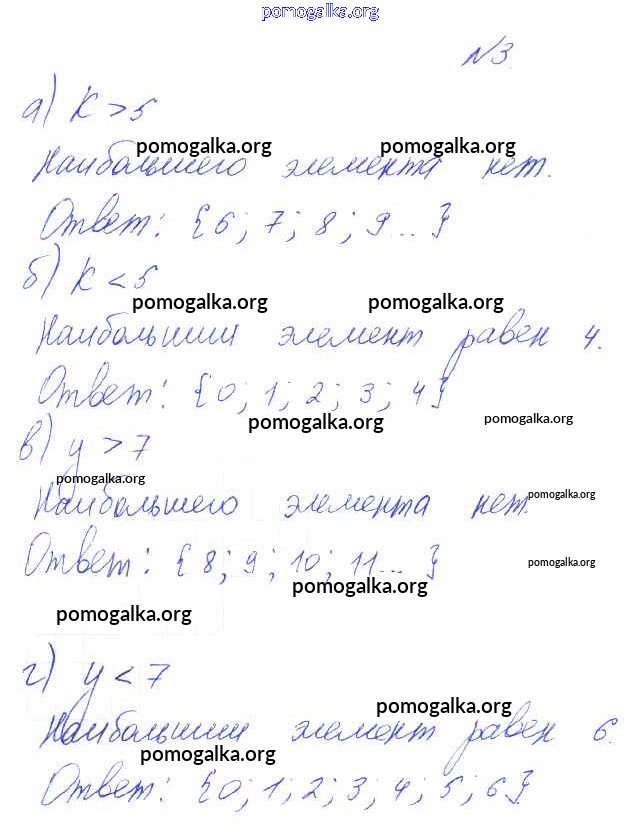 pomogalka.org
№3.
а) К > 5
pomogalka.org pomogalka.org
Наибольшего элемента нет.
Ответ: {6; 7; 8; 9...}
б) К < 5
pomogalka.org pomogalka.org
Наибольший элемент равен 4.
Ответ: {0; 1; 2; 3; 4}
pomogalka.org pomogalka.org
в) у > 7
pomogalka.org pomogalka.org
Наибольшего элемента нет.
Ответ: {8; 9; 10; 11...}
pomogalka.org
pomogalka.org
pomogalka.org
г) у < 7
pomogalka.org
Наибольший элемент равен 6.
pomogalka.org
Ответ: {0; 1; 2; 3; 4; 5; 6}